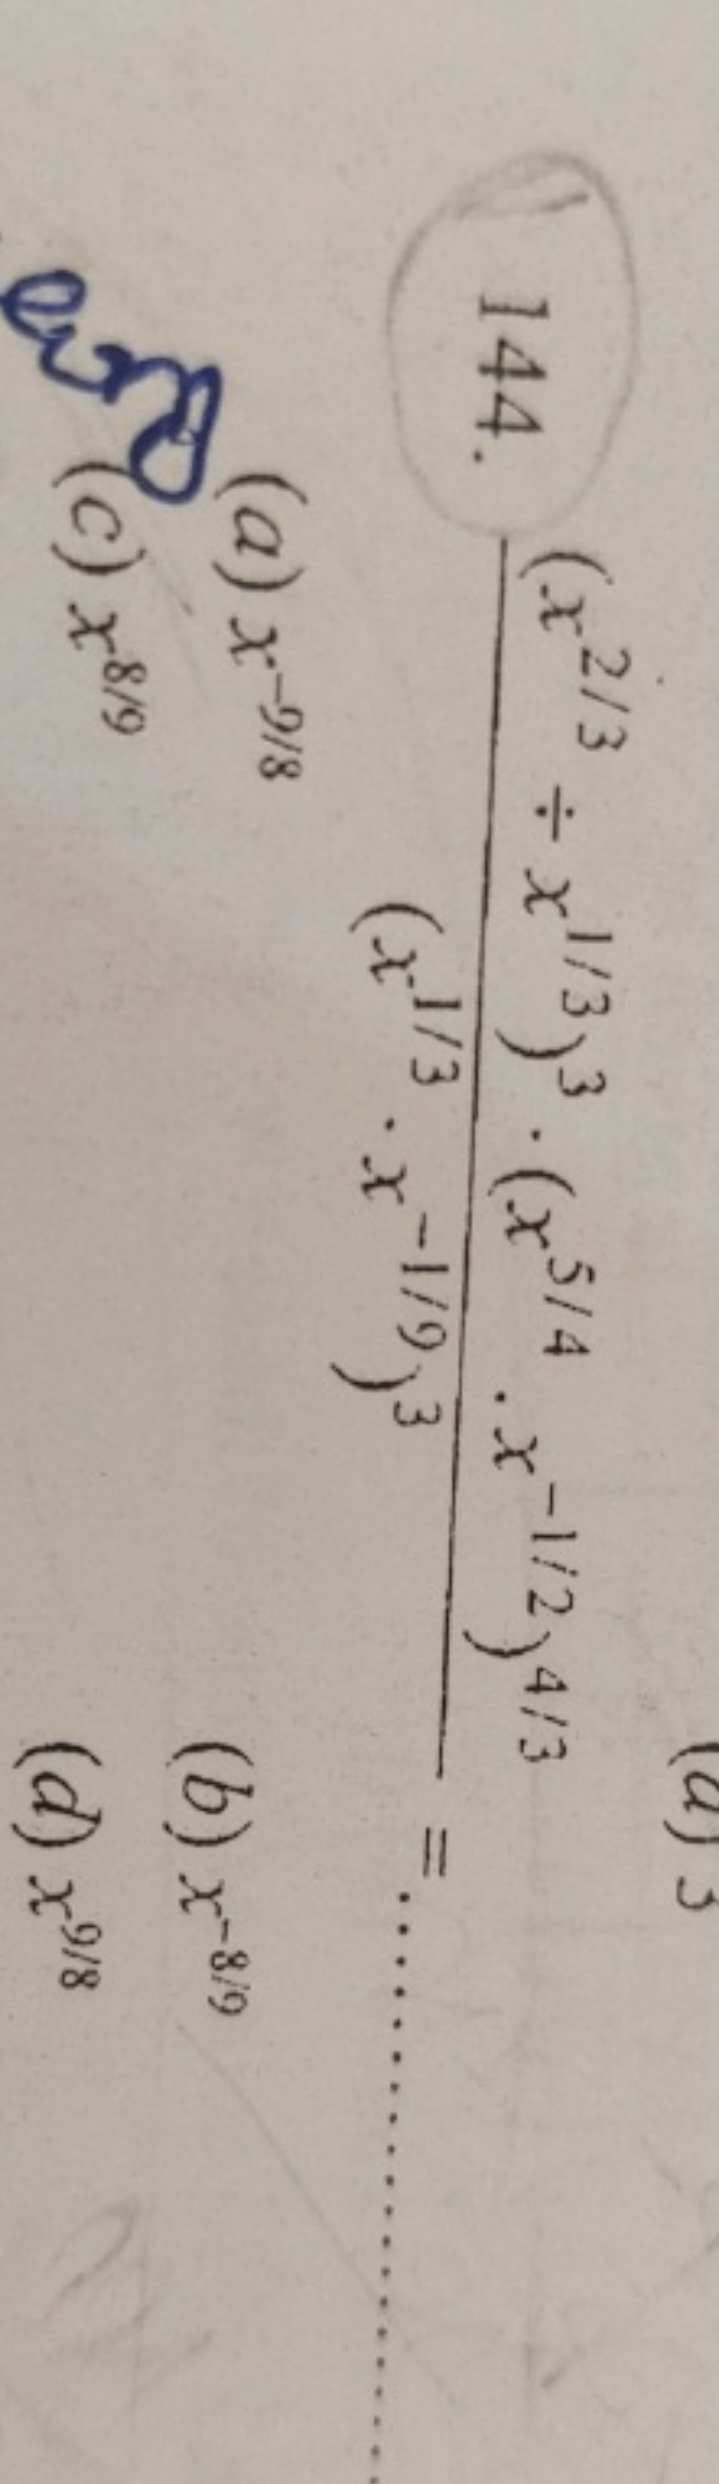 144. (x^{2/3} ÷ x^{1/3})^3 · (x^{5/4} · x^{-1/2})^{4/3}
(x^{1/3} · x^{-1/9})^3
= ....................
(a) x^{-9/8} (b) x^{-8/9}
(c) x^{8/9} (d) x^{9/8}